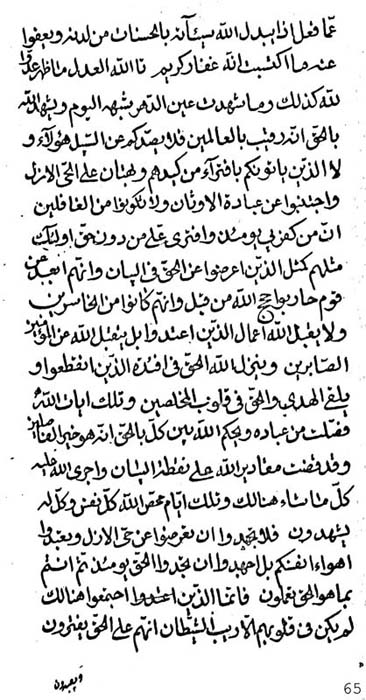 عمّا فعل اذا يبدل الله سيئآته بالحسنات من لدنه ويعفوا
عنه ما اكتسبت انّه غفار كريم تا الله العدل ما ظهر عدل
لله كذلك وما شهدت عين الدهر شبه اليوم ويشهد الله
بالحق انّه رقيب بالعالمين فلا يصدّكم عن السبل هؤلآء و
لا الذين ياتونكم بافترآء من كيدهم و بهتان على الحيّ الازل
واجتنبوا عن عبادة الاوثان ولا تكونوا من الغافلين
انّ من كفر بي يومئذ وافترى عليّ من دون حق اولئك
مثلهم كمثل الذين اعرضوا عن الحقّ في البيان وانّهم ابعد عن
قوم حاربوا حجج الله من قبل وانّهم كانوا من الخاسرين
ولا يقبل الله اعمال الذين اعتدوا بل يتقبل الله من المتقين
الصابرين وينزل الله الحقّ في افئدة الذين انقطعوا و
يلقي الهدى والحقّ في قلوب المخلصين وتلك ايات الله
فصّلت من عباده ويحكم الله بين كلّ بالحقّ انّه هو خير الفاصلين
وقد قضت مقادير الله على نقطة البيان واجرى الله عليه
كلّ ما شاء هنالك وتلك ايام محّص الله كلّ نفس وكلّ له
يشهدون فلا تجهدوا ان تعرضوا عن حيّ الازل وتعبدوا
اهواء انفسكم بل اجهدوا ان تجدوا الحقّ يومئذ ثمّ انتم
بما هو الحقّ تعملون فانّما الذين اعتدوا اجتمعوا هنالك
لم يكن في قلوبهم الّا ريب الشيطان انّهم على الحقّ يفترون
و يعبدون
65